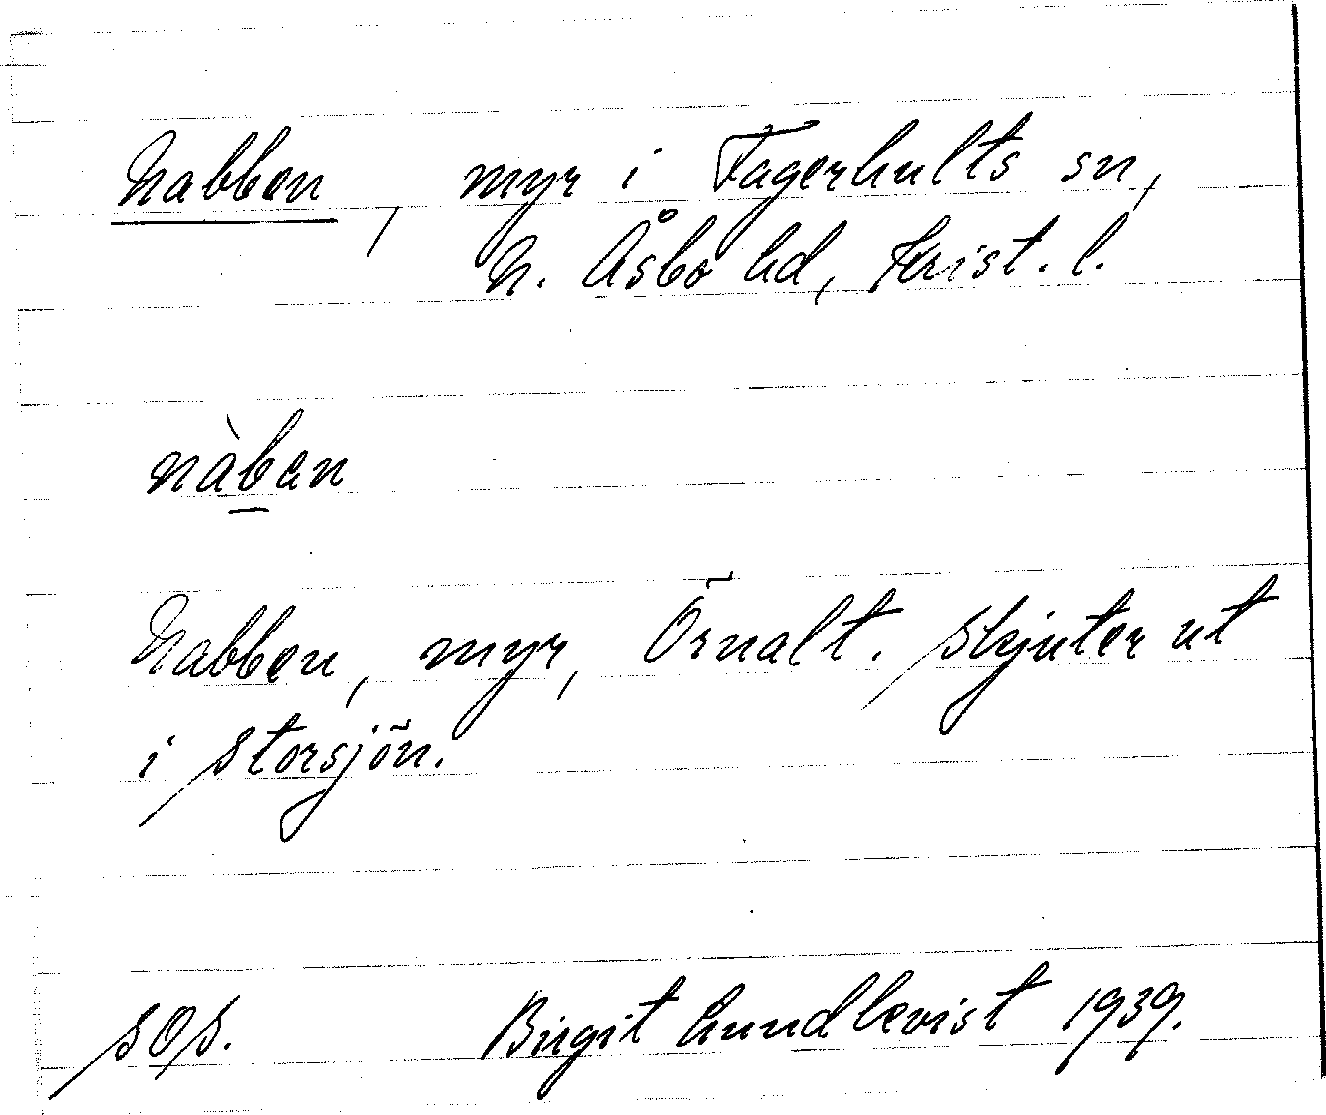 Nabben, myr i Fagerhults sn,
N. Åsbo hd, Krist. l.
nàban
Nabben, myr, Örnalt. Skjuter ut
i Storsjön.
Birgit Lundkvist 1939.